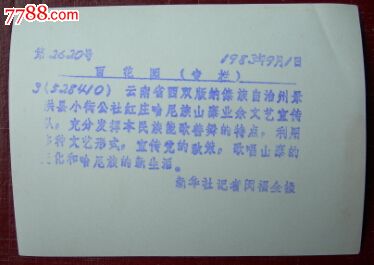 7788.com
第2620号
1983年9月1日
百花园(专栏)
3(528410) 云南省西双版纳傣族自治州景
洪县小街公社红庄哈尼族山寨业余文艺宣传
队，充分发挥本民族能歌善舞的特点，利用
多种文艺形式，宣传党的政策，歌唱山寨的
变化和哈尼族的新生活。
新华社记者闵福全摄